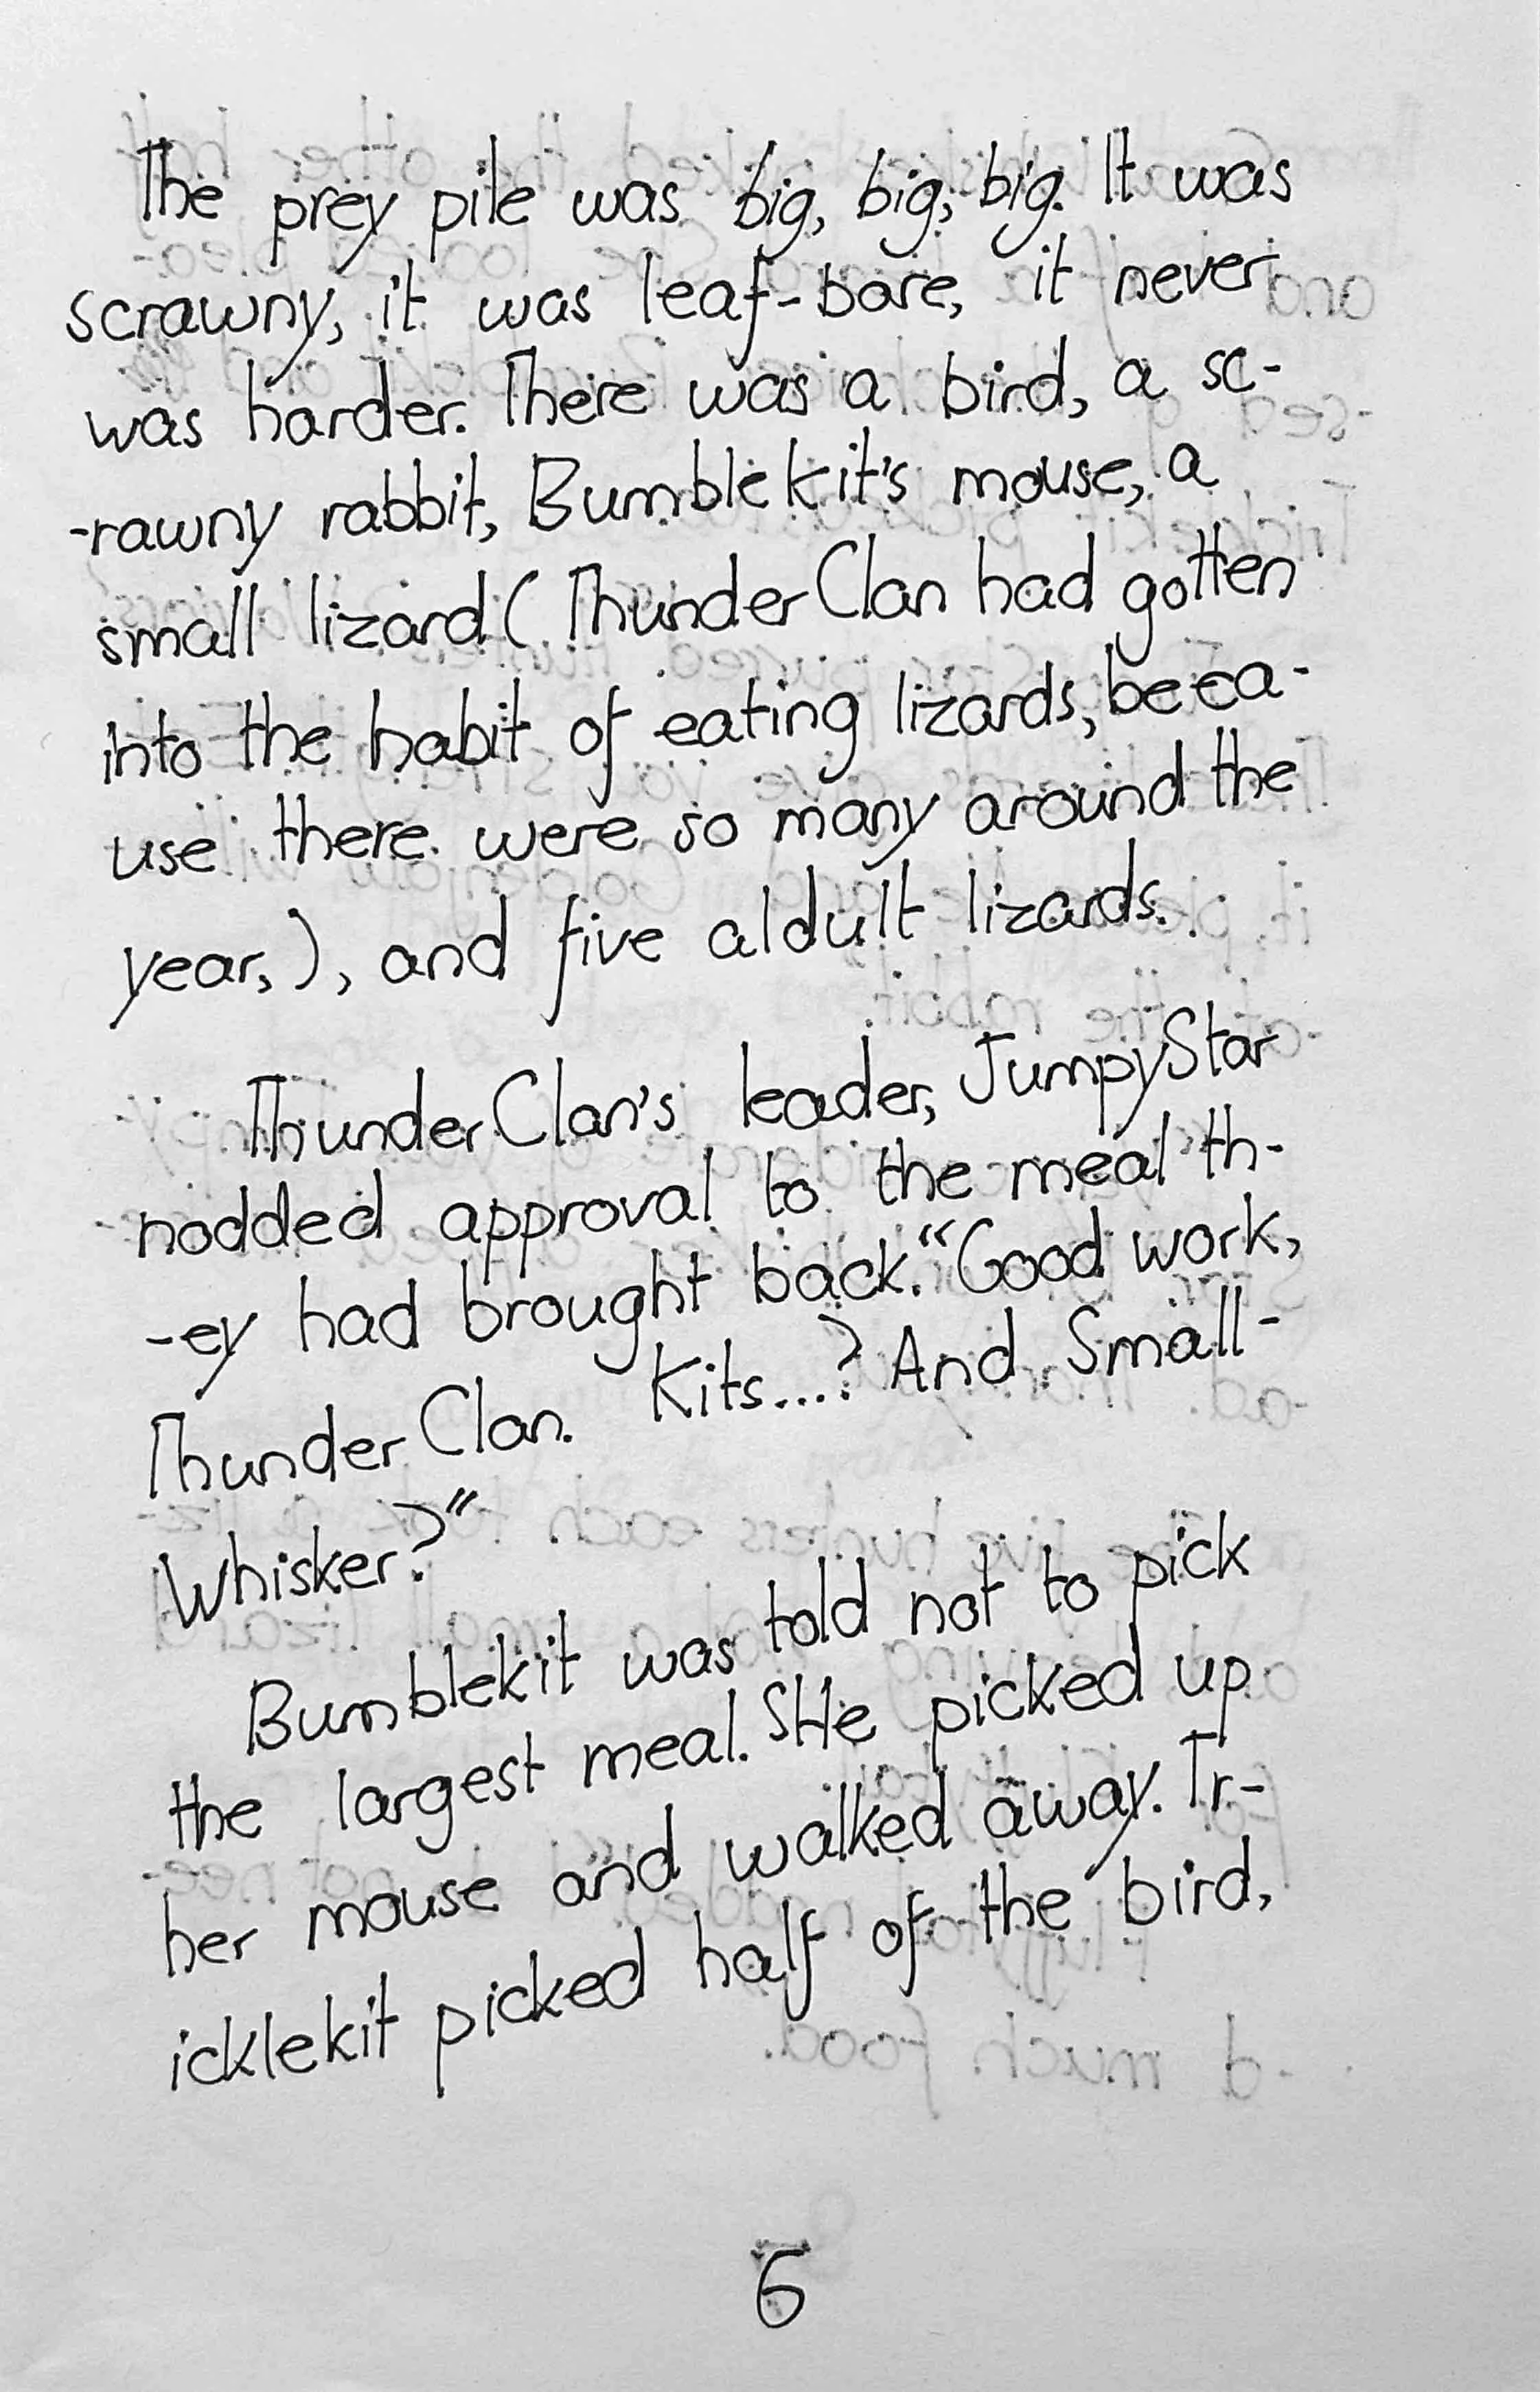 The prey pile was big, big, big. It was
scrawny, it was leaf-bare, it never
was harder. There was a bird, a sc-
-rawny rabbit, Bumblekit's mouse, a
small lizard (ThunderClan had gotten
into the habit of eating lizards, beca-
use there were so many around the
year,), and five aldult lizards.
ThunderClan's leader, JumpyStar
nodded approval to the meal th-
-ey had brought back. "Good work,
ThunderClan. Kits...? And Small-
Whisker?"
Bumblekit was told not to pick
the largest meal. SHe picked up
her mouse and walked away. Tr-
icklekit picked half of the bird,
6